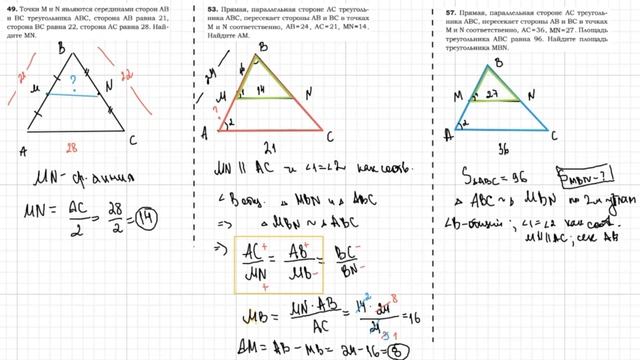 49. Точки M и N являются серединами сторон AB
и BC треугольника ABC, сторона AB равна 21,
сторона BC равна 22, сторона AC равна 28. Най-
дите MN.
B
21
22
M
?
N
A
C
28
MN - ср. линия
MN = AC/2 = 28/2 = 14
53. Прямая, параллельная стороне AC треуголь-
ника ABC, пересекает стороны AB и BC в точках
M и N соответственно, AB=24, AC=21, MN=14.
Найдите AM.
24
B
M
1
14
N
?
A
2
C
21
MN || AC и ∠1=∠2 как соотв.
∠B общ. △ MBN и △ ABC
=> △ MBN ~ △ ABC
=> AC/MN = AB/MB = BC/BN
MB = MN·AB/AC = 14·24/21 = 16
AM = AB - MB = 24 - 16 = 8
57. Прямая, параллельная стороне AC треуголь-
ника ABC, пересекает стороны AB и BC в точках
M и N соответственно, AC=36, MN=27. Площадь
треугольника ABC равна 96. Найдите площадь
треугольника MBN.
B
M
1
27
N
A
2
C
36
S△ABC = 96
SMBN - ?
△ ABC ~ △ MBN по 2м углам
∠B-общий ; ∠1=∠2 как соотв.
MN||AC; сек AB